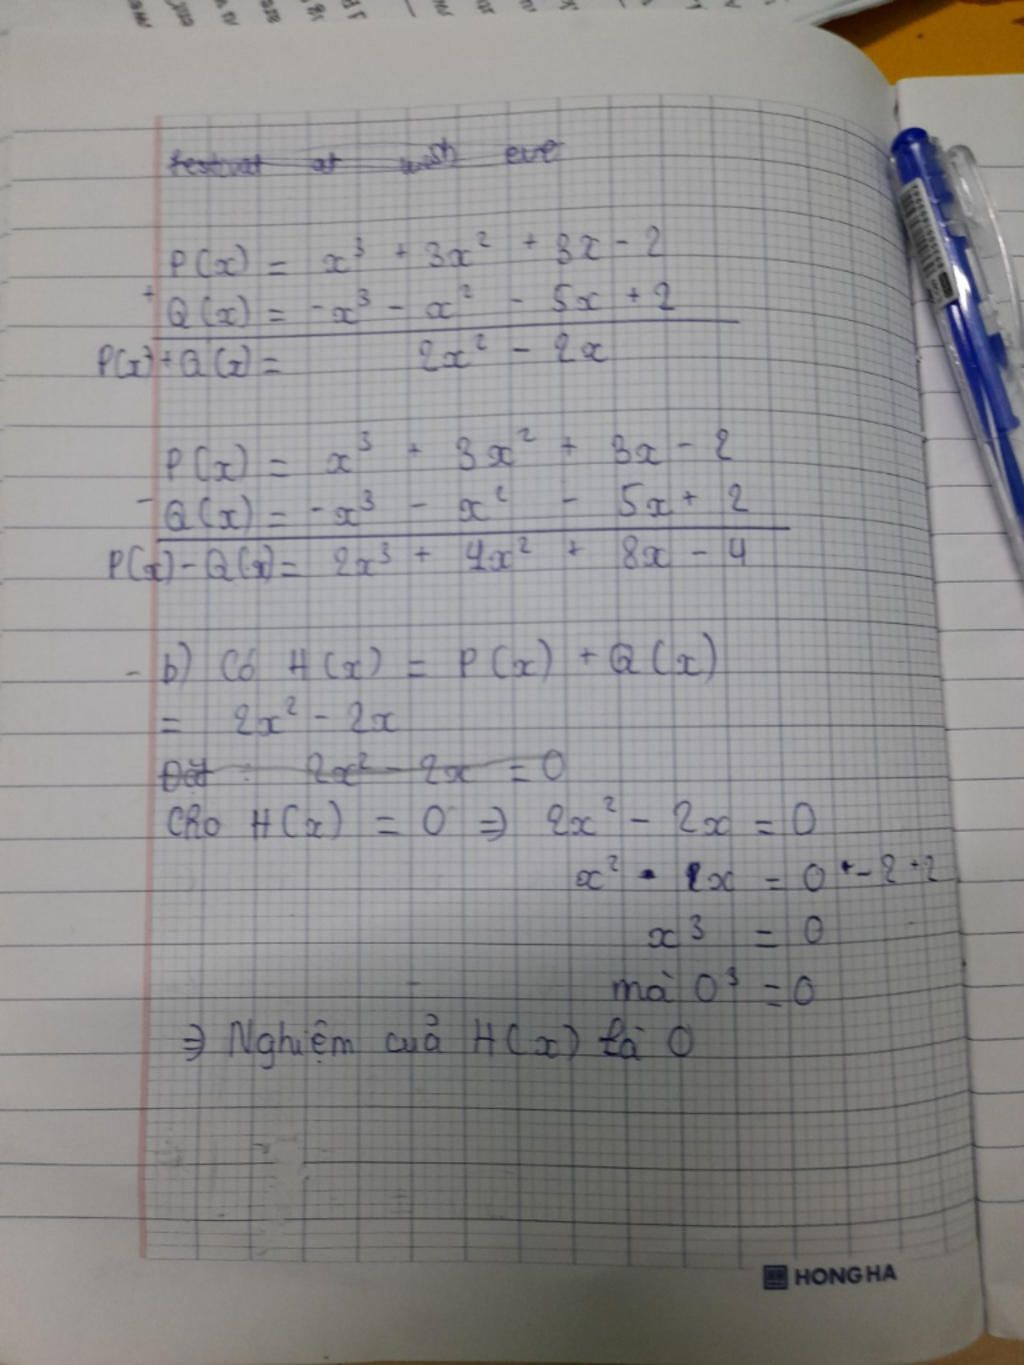 festival at wish eve
P(x) = x³ + 3x² + 3x - 2
+
Q(x) = -x³ - x² - 5x + 2
P(x) + Q(x) = 2x² - 2x
P(x) = x³ + 3x² + 3x - 2
-
Q(x) = -x³ - x² - 5x + 2
P(x) - Q(x) = 2x³ + 4x² + 8x - 4
- b) Có H(x) = P(x) + Q(x)
= 2x² - 2x
Đặt : 2x² - 2x = 0
Cho H(x) = 0 ⇒ 2x² - 2x = 0
x² - 2x = 0
x³ = 0
mà 0³ = 0
⇒ Nghiệm của H(x) là 0
HONG HA